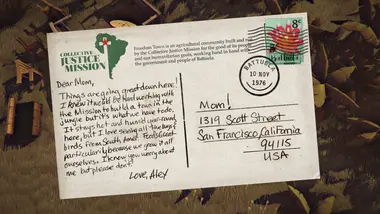 COLLECTIVE
JUSTICE
MISSION
Freedom Town is an agricultural community built and run
by the Collective Justice Mission for the good of its people
and our humanitarian goals, working hand in hand with
the government and people of Battuela.
8¢
BATTUELA
10 NOV
1976
Dear Mom,
Things are going great down here!
I knew it would be hard working with
the Mission to build a town in the
jungle but it's what we have to do.
It stays hot and humid year-round
here, but I love seeing all the
birds from South America. Food's great
particularly because we grow it all
ourselves. I know you worry about
me but please don't!
Love, Alex
Mom!
1319 Scott Street
San Francisco, California
94115
USA